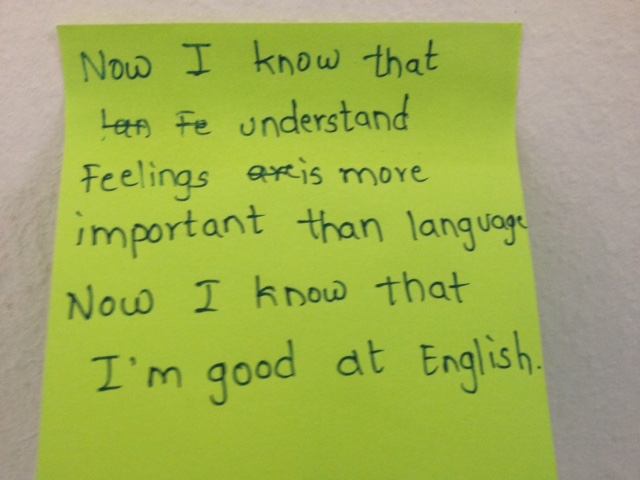 Now I know that
lan Fe understand
Feelings are is more
important than language
Now I know that
I'm good at English.